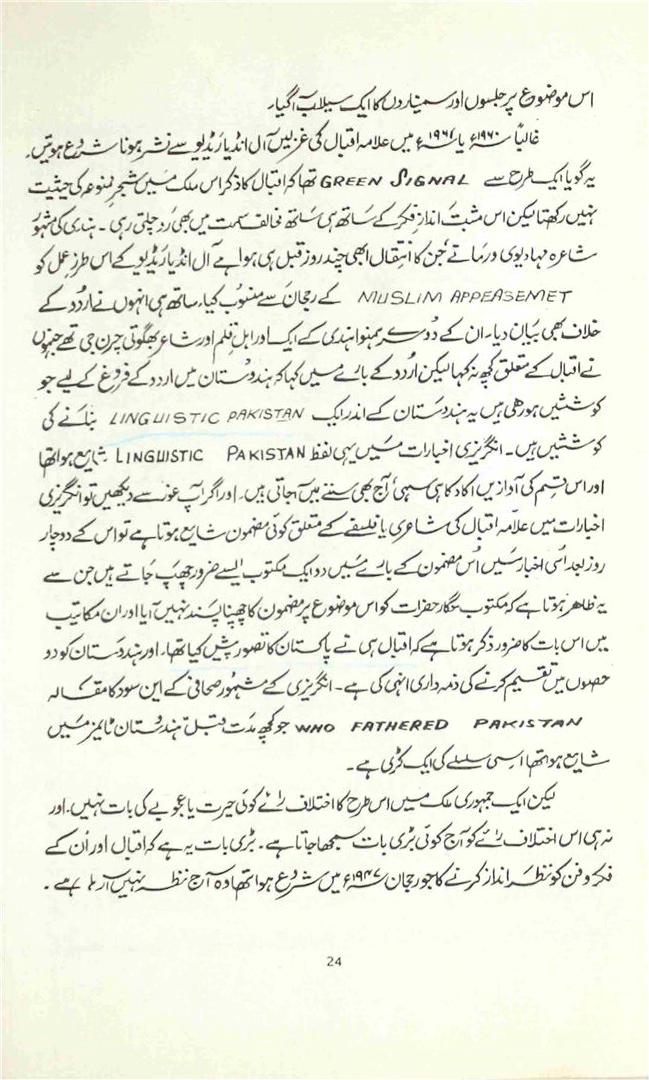 اس موضوع پر جلسوں اور سمیناروں کا ایک سیلاب آگیا۔
غالباً ۱۹۶۰ء یا ۱۹۶۷ء میں علامہ اقبال کی غزلیں آل انڈیا ریڈیو سے نشر ہونا شروع ہوئیں۔
یہ گویا ایک طرح سے GREEN SIGNAL تھا کہ اقبال کا ذکر اس ملک میں شجرِ ممنوعہ کی حیثیت
نہیں رکھتا لیکن اس مثبت اندازِ فکر کے ساتھ ہی ساتھ مخالف سمت میں بھی رَد چلتی رہی۔ ہندی کی مشہور
شاعرہ مہادیوی ورما نے جن کا انتقال ابھی چند روز قبل ہی ہوا ہے آل انڈیا ریڈیو کے اس طرزِ عمل کو
MUSLIM APPEASEMET کے رجحان سے منسوب کیا، ساتھ ہی انہوں نے اردو کے
خلاف بھی بیان دیا۔ ان کے دوسرے ہمنوا ہندی کے ایک اور اہلِ قلم اور شاعر بھگوتی چرن جی تھے جنہوں
نے اقبال کے متعلق کچھ نہ کہا لیکن اُردو کے بارے میں کہا کہ ہندوستان میں اردو کے فروغ کے لیے جو
کوششیں ہو رہی ہیں یہ ہندوستان کے اندر ایک LINGUISTIC PAKISTAN بنانے کی
کوششیں ہیں۔ انگریزی اخبارات میں یہی لفظ LINGUISTIC PAKISTAN شایع ہوا تھا
اور اس قسم کی آوازیں اکا دکا ہی سہی آج بھی سننے میں آجاتی ہیں۔ اور اگر آپ غور سے دیکھیں تو انگریزی
اخبارات میں علاّمہ اقبال کی شاعری یا فلسفے کے متعلق کوئی مضمون شایع ہوتا ہے تو اس کے دو چار
روز بعد اُسی اخبار میں اُس مضمون کے بارے میں دو ایک مکتوب ایسے ضرور چھپ جاتے ہیں جن سے
یہ ظاہر ہوتا ہے کہ مکتوب نگار حضرات کو اس موضوع پر مضمون کا چھپنا پسند نہیں آیا اور ان مکاتیب
میں اس بات کا ضرور ذکر ہوتا ہے کہ اقبال ہی نے پاکستان کا تصور پیش کیا تھا۔ اور ہندوستان کو دو
حصوں میں تقسیم کرنے کی ذمہ داری انہی کی ہے۔ انگریزی کے مشہور صحافی کے این سود کا مقالہ
WHO FATHERED PAKISTAN جو کچھ مدت قبل ہندوستان ٹایمز میں
شایع ہوا تھا اسی سلسلے کی ایک کڑی ہے۔
لیکن ایک جمہوری ملک میں اس طرح کا اختلاف رائے کوئی حیرت یا عجوبے کی بات نہیں۔ اور
نہ ہی اس اختلاف رائے کو آج کوئی بڑی بات سمجھا جاتا ہے۔ بڑی بات یہ ہے کہ اقبال اور اُن کے
فکر و فن کو نظر انداز کرنے کا جو رجحان ۱۹۴۷ء میں شروع ہوا تھا وہ آج نظر نہیں آ رہا ہے۔
24